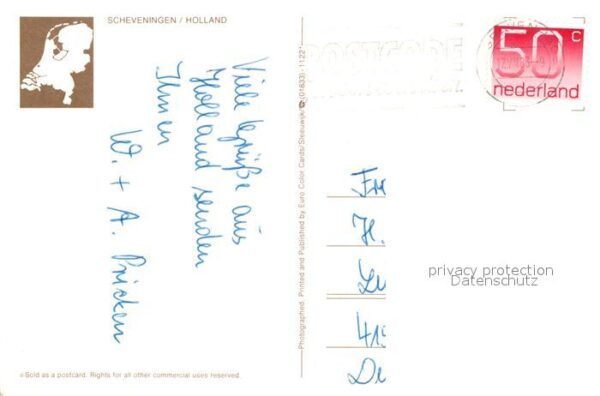 SCHEVENINGEN / HOLLAND
Viele Grüße aus
Holland senden
Ihnen
W. + A. Pricken
© Sold as a postcard. Rights for all other commercial uses reserved.
Photographed. Printed and Published by Euro Color Cards/Sleeuwijk/☎(01833)-1122*
POSTCODE
50 c
nederland
Fr
H.
41
privacy protection
Datenschutz